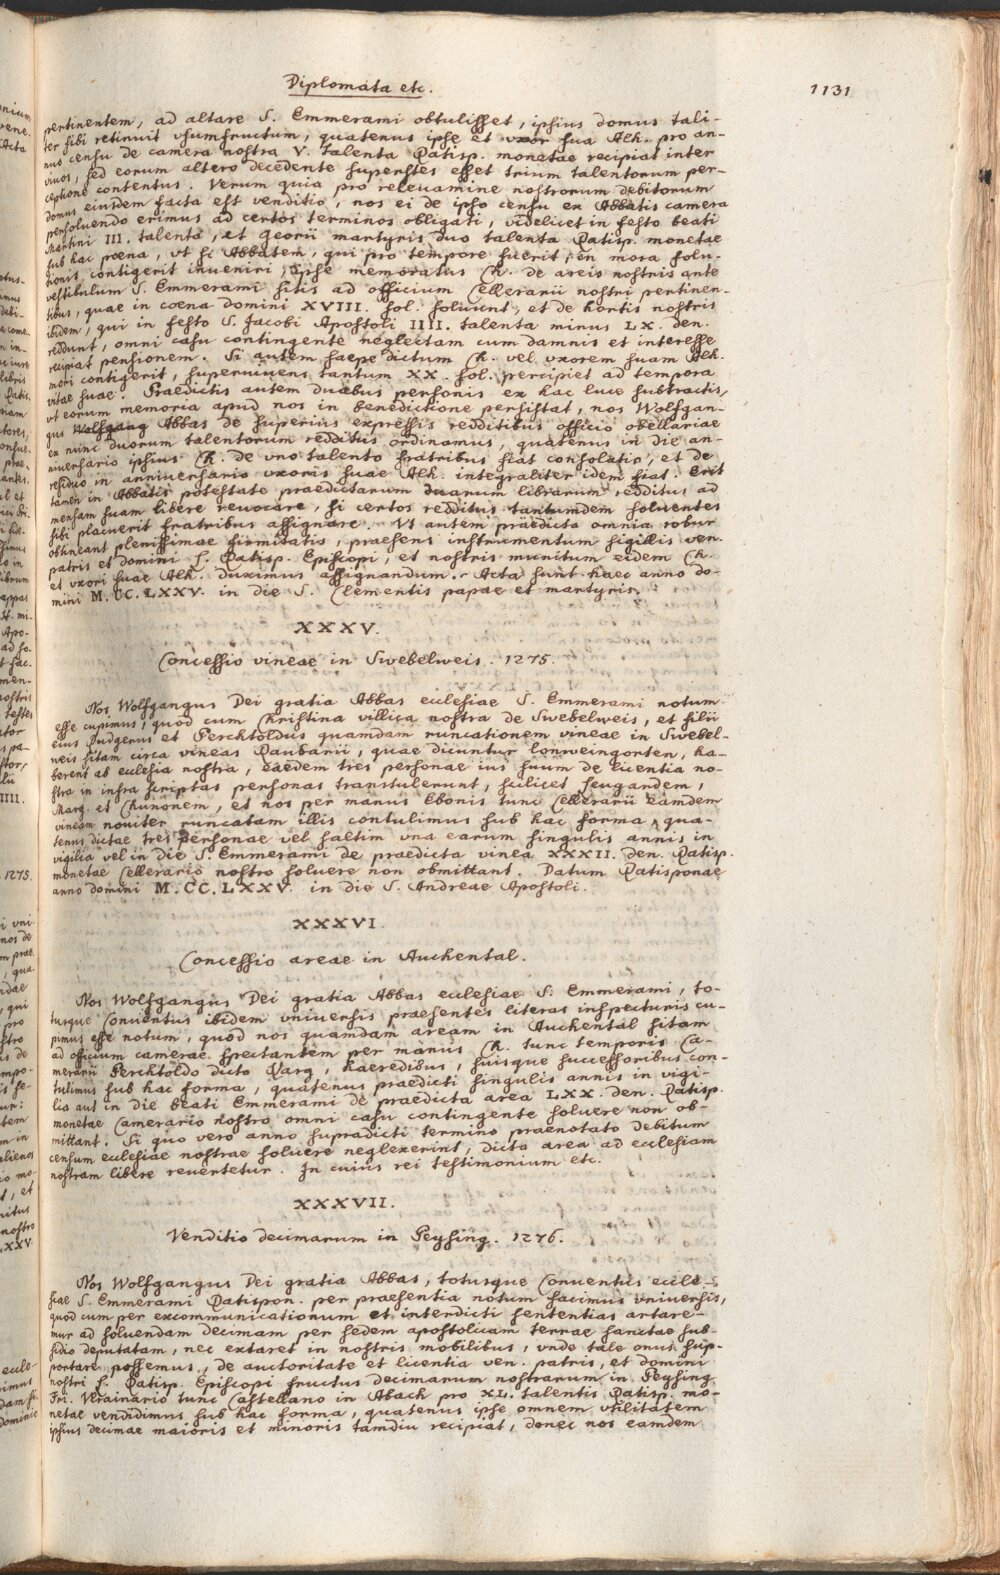 Diplomata etc.
1131
pertinentem, ad altare S. Emmerami obtulisset, ipsius domus tali-
ter sibi retinuit vsumfructum, quatenus ipse et vxor sua Alh. pro an-
nuo censu de camera nostra V. talenta Ratisp. monetae recipiat inter
viuos, sed eorum altero decedente superstes esset trium talentorum per-
ceptione contentus. Verum quia pro releuamine nostrorum debitorum
domus eiusdem facta est venditio, nos ei de ipso censu ex Abbatis camera
persoluendo erimus ad certos terminos obligati, videlicet in festo beati
Martini III. talenta, et Georii martyris duo talenta Ratisp. monetae
sub hac poena, vt si Abbatem, qui pro tempore fuerit, in mora solu-
tionis contigerit inueniri, ipse memoratus Ch. de areis nostris ante
vestibulum S. Emmerami sitis ad officium Cellerarii nostri pertinen-
tibus, quae in coena domini XVIII. sol. soluunt, et de hortis nostris
ibidem, qui in festo S. Jacobi Apostoli IIII. talenta minus LX. den.
reddunt, omni casu contingente neglectam cum damnis et interesse
recipiat pensionem. Si autem saepe dictum Ch. vel vxorem suam Alh.
mori contigerit, superuiuens tantum XX. sol. percipiet ad tempora
vitae suae. Praedictis autem duabus personis ex hac luce subtractis,
vt eorum memoria apud nos in benedictione persistat, nos Wolfgan-
gus Wolfgang Abbas de superius expressis redditibus officio obellariae
ex nunc duorum talentorum redditus ordinamus, quatenus in die an-
niuersario ipsius Ch. de vno talento fratribus fiat consolatio, et de
residuo in anniuersario vxoris suae Alh. integraliter idem fiat. Erit
tamen in Abbatis potestate praedictarum duarum librarum redditus ad
mensam suam libere reuocare, si certos redditus tantumdem soluentes
sibi placuerit fratribus assignare. Vt autem praedicta omnia robur
obtineant plenissimae firmitatis, praesens instrumentum sigillis ven.
patris et domini f. Ratisp. Episcopi, et nostris munitum eidem Ch.
et vxori suae Alh. duximus assignandum. Acta sunt haec anno do-
mini M.CC.LXXV. in die S. Clementis papae et martyris.
XXXV.
Concessio vineae in Swebelweis. 1275.
Nos Wolfgangus Dei gratia Abbas ecclesiae S. Emmerami notum
esse cupimus, quod cum Christina villica nostra de Swebelweis, et filii
eius Rudgerus et Perchtoldus quamdam runcationem vineae in Swebel-
weis sitam circa vineas Raubarii, quae dicuntur Lonweingorten, ha-
berent ab ecclesia nostra, eaedem tres personae ius suum de licentia no-
stra in infra scriptas personas transtulerunt, scilicet Leugandem,
Marg. et Chunonem, et nos per manus Ebonis tunc Cellerarii eamdem
vineam nouiter runcatam illis contulimus sub hac forma, qua-
tenus dictae tres personae vel saltim vna earum singulis annis in
vigilia vel in die S. Emmerami de praedicta vinea XXXII. den. Ratisp.
monetae Cellerario nostro soluere non obmittant. Datum Ratisponae
anno domini M.CC.LXXV. in die S. Andreae Apostoli.
XXXVI.
Concessio areae in Auchental.
Nos Wolfgangus Dei gratia Abbas ecclesiae S. Emmerami, to-
tusque Conuentus ibidem vniuersis praesentes literas inspecturis cu-
pimus esse notum, quod nos quamdam aream in Auchental sitam
ad officium camerae spectantem per manus Ch. tunc temporis Ca-
merarii Perchtoldo dicto Varg, haeredibus, suisque successoribus con-
tulimus sub hac forma, quatenus praedicti singulis annis in vigi-
lia aut in die beati Emmerami de praedicta area LXX. den. Ratisp.
monetae Camerario nostro omni casu contingente soluere non ob-
mittant. Si quo vero anno supradicti termino praenotato debitum
censum ecclesiae nostrae soluere neglexerint, dicta area ad ecclesiam
nostram libere reuertetur. In cuius rei testimonium etc.
XXXVII.
Venditio decimarum in Geysing. 1276.
Nos Wolfgangus Dei gratia Abbas, totusque Conuentus eccle-
siae S. Emmerami Ratispon. per praesentia notum facimus vniuersis,
quod cum per excommunicationum et interdicti sententias artare-
mur ad soluendam decimam per sedem apostolicam terrae sanctae sub-
sidio deputatam, nec extaret in nostris mobilibus, vnde tale onus sup-
portare possemus, de auctoritate et licentia ven. patris, et domini
nostri f. Ratisp. Episcopi fructus decimarum nostrarum in Geysing
Fri. Verainario tunc Castellano in Abach pro XL. talentis Ratisp. mo-
netae vendidimus sub hac forma, quatenus ipse omnem vtilitatem
ipsius decimae maioris et minoris tamdiu recipiat, donec nos eamdem